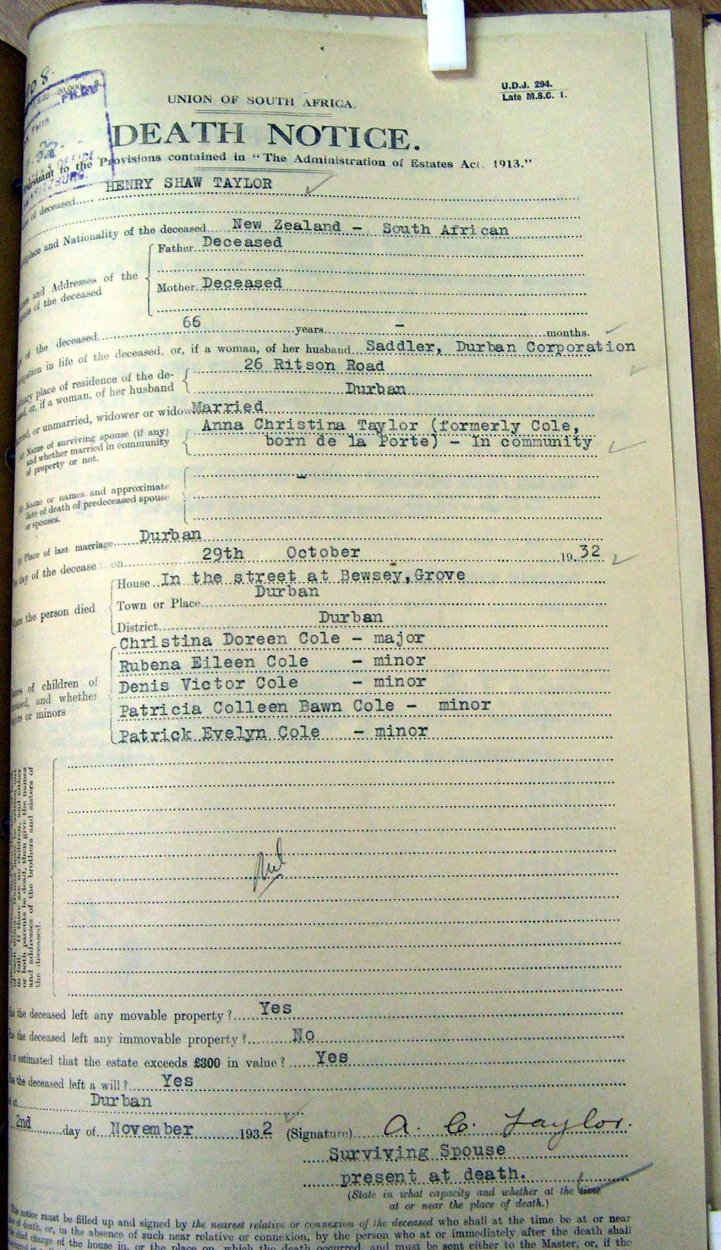 U.D.J. 294.
Late M.S.C. 1.
UNION OF SOUTH AFRICA.
DEATH NOTICE.
to the Provisions contained in "The Administration of Estates Act. 1913."
of deceased HENRY SHAW TAYLOR
and Nationality of the deceased New Zealand - South African
and Addresses of the
of the deceased
Father Deceased
Mother Deceased
of the deceased 66 years - months.
in life of the deceased, or, if a woman, of her husband Saddler, Durban Corporation
place of residence of the de-
or, if a woman, of her husband
26 Ritson Road
Durban
or unmarried, widower or widow Married
Name of surviving spouse (if any)
and whether married in community
of property or not.
Anna Christina Taylor (formerly Cole,
born de la Porte) - In community
Name or names and approximate
date of death of predeceased spouse
or spouses.
-
Place of last marriage Durban
day of the decease: on 29th October 1932
the person died
House In the street at Bewsey, Grove
Town or Place Durban
District Durban
of children of
and whether
or minors
Christina Doreen Cole - major
Rubena Eileen Cole - minor
Denis Victor Cole - minor
Patricia Colleen Bawn Cole - minor
Patrick Evelyn Cole - minor
or both parents be dead, then give the names
and addresses of the brothers and sisters of
the deceased.
Nil
the deceased left any movable property? Yes
the deceased left any immovable property? No
estimated that the estate exceeds £300 in value? Yes
the deceased left a will? Yes
Durban
2nd day of November 1932 (Signature) A. C. Taylor.
Surviving Spouse
present at death.
(State in what capacity and whether at the time
at or near the place of death.)
notice must be filled up and signed by the nearest relative or connexion of the deceased who shall at the time be at or near
of death, or, in the absence of such near relative or connexion, by the person who at or immediately after the death shall
charge of the house in, or the place on, which the death occurred, and must be sent either to the Master, or, if the